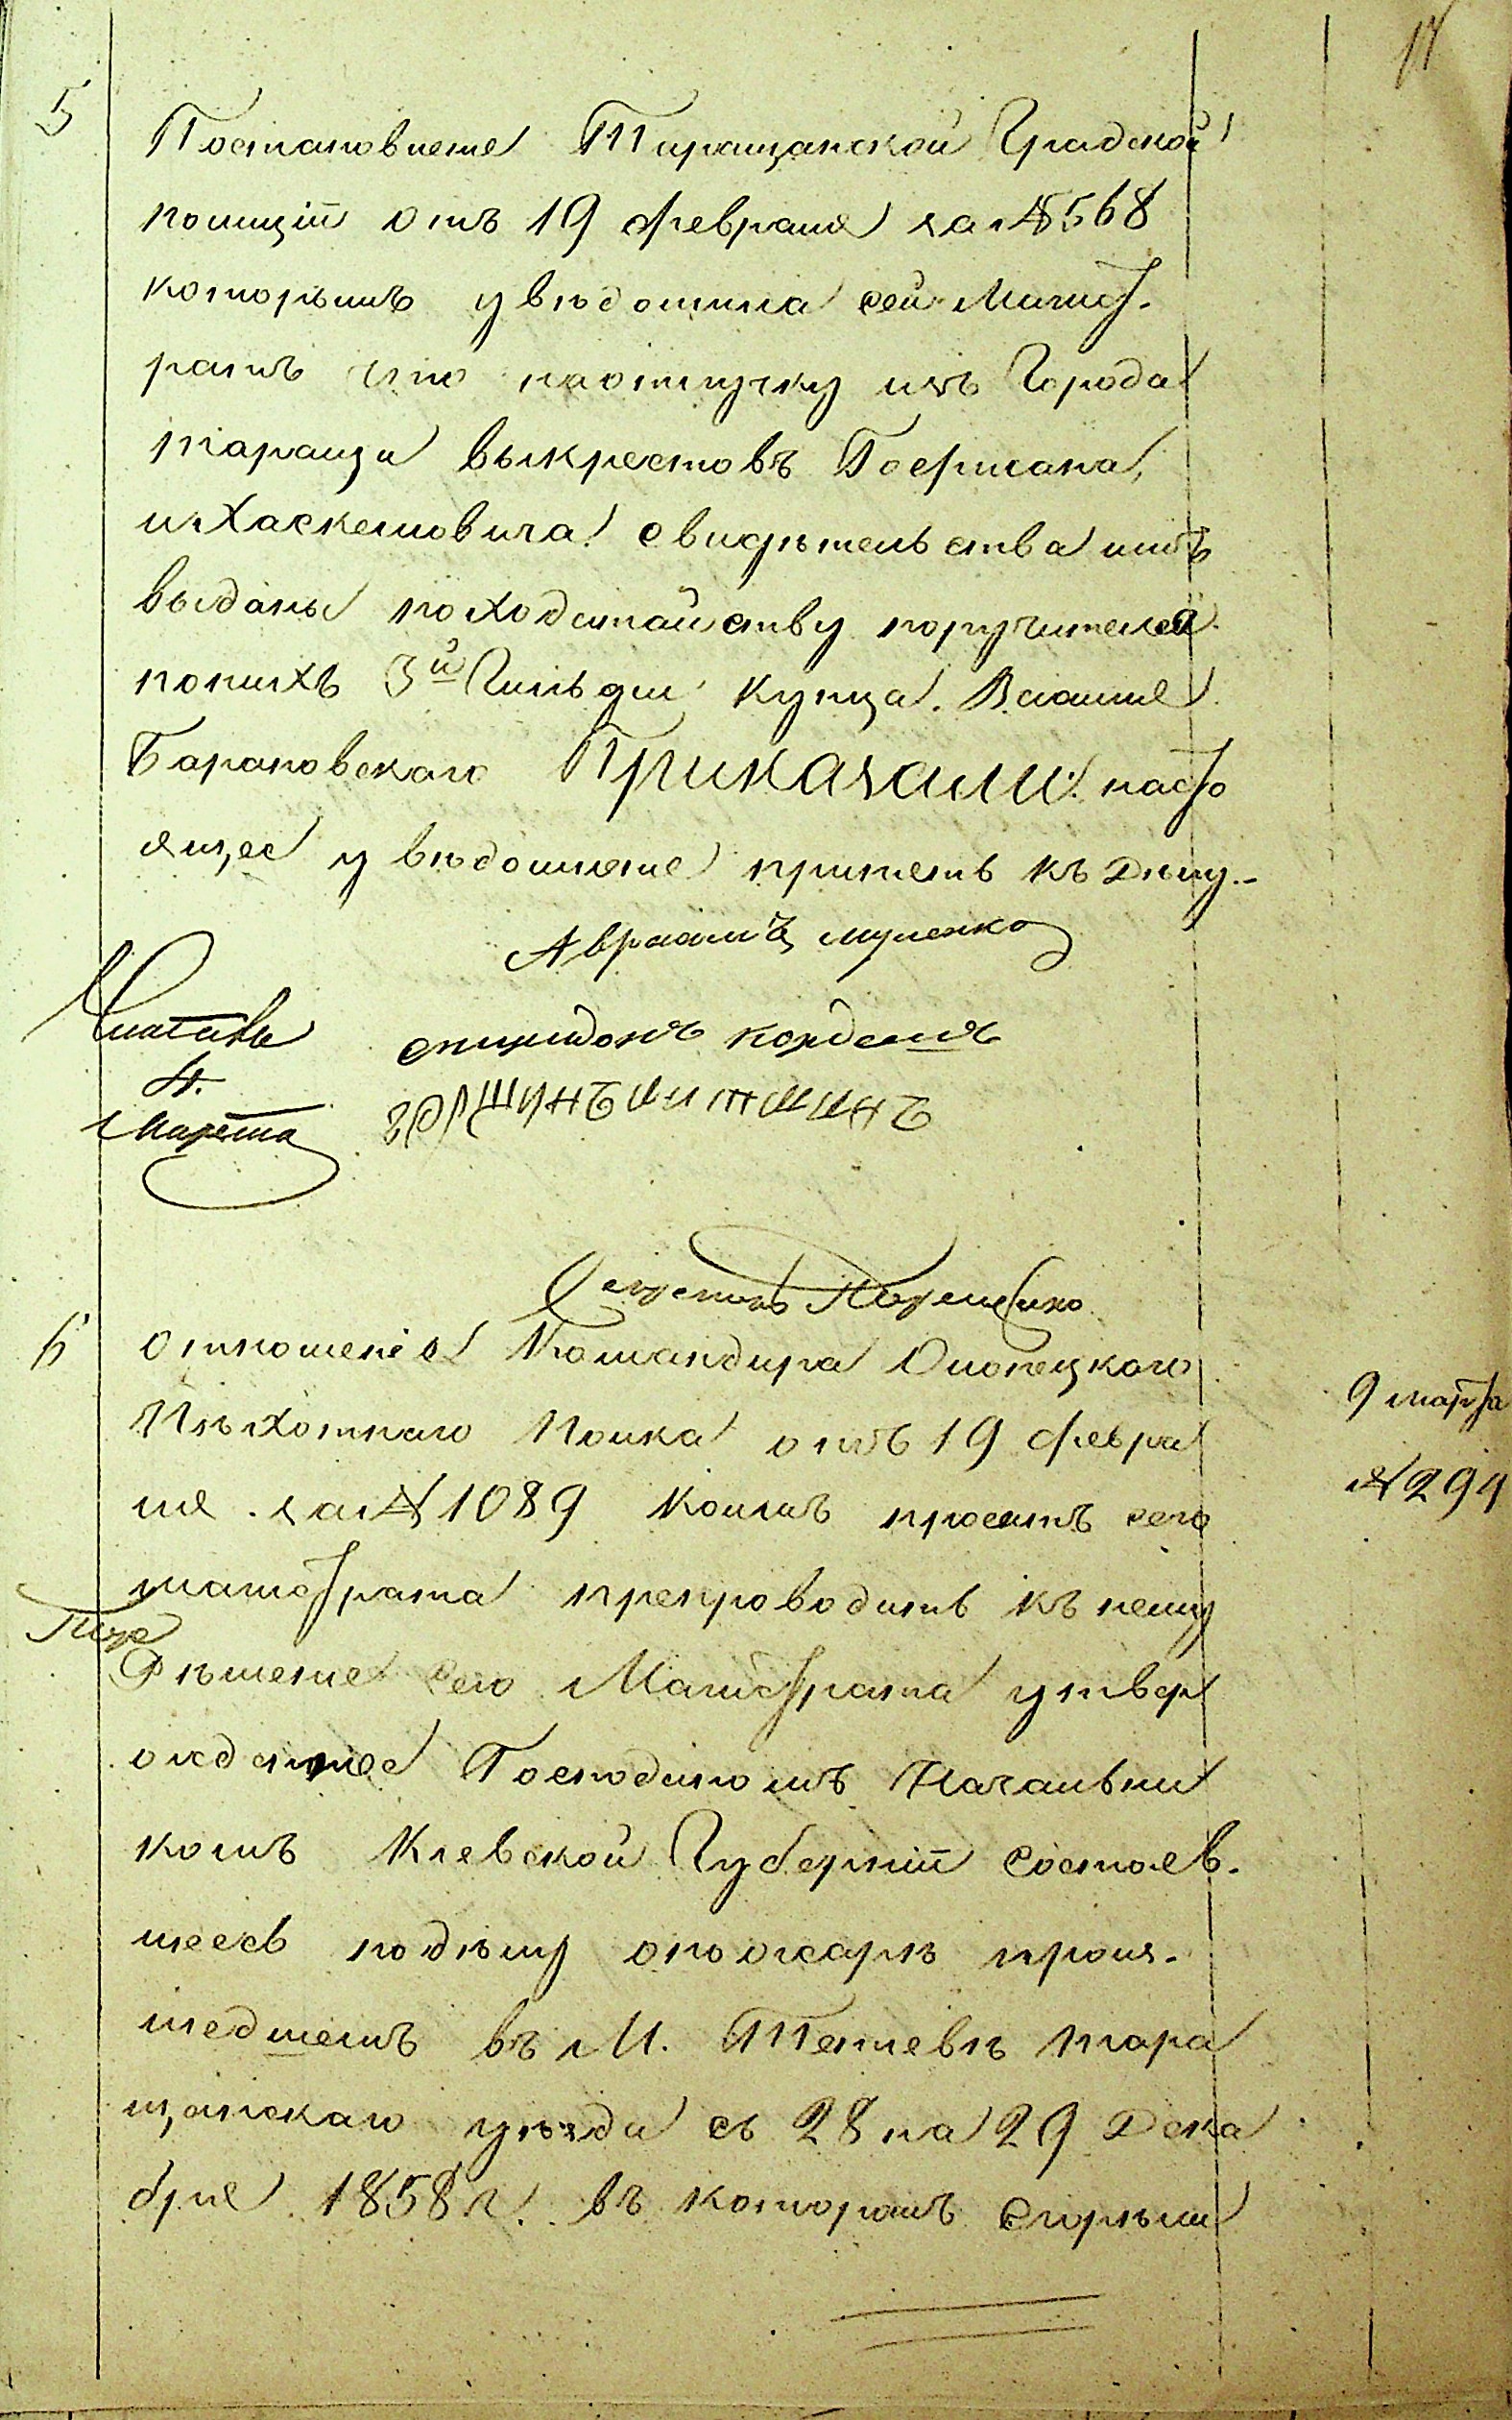 17
5
Постановленіе Таращанской Градской
полиціи отъ 19 февраля за №568
которымъ увѣдомила сей Магист-
ратъ что наотлучку изъ Города
Таращи выкрестовъ Гофмана,
и Хаскелевича свидѣтельства имъ
выданы по ходатайству поручителей
понихъ 3й Гильдіи Купца
Барановскаго Приказали: насто
ящее увѣдомленіе пріобщить къ Дѣлу.-
Авраамъ
спиридонъ
4.
Марта
Секретарь
6
отношеніе Командира Олонецкого
Пѣхотнаго Полка отъ 19 февра
ля за №1089 коимъ проситъ сего
магистрата препроводить къ нему
Рѣшеніе Сего Магистрата утвер
жденное Господиномъ Начальни
комъ Кіевской Губерніи состояв-
шееся подѣлу опожарѣ произ-
шедшемъ въ М. Тетіевѣ Тара
щанскаго уѣзда съ 28 на 29 Дека
бря 1858 г. въ которомъ сгорѣли
9 марта
№294